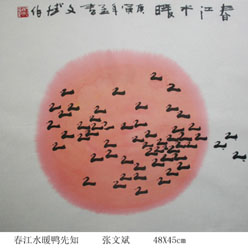 春江水暖 庚寅年 文斌
春江水暖鸭先知 张文斌 48X45cm